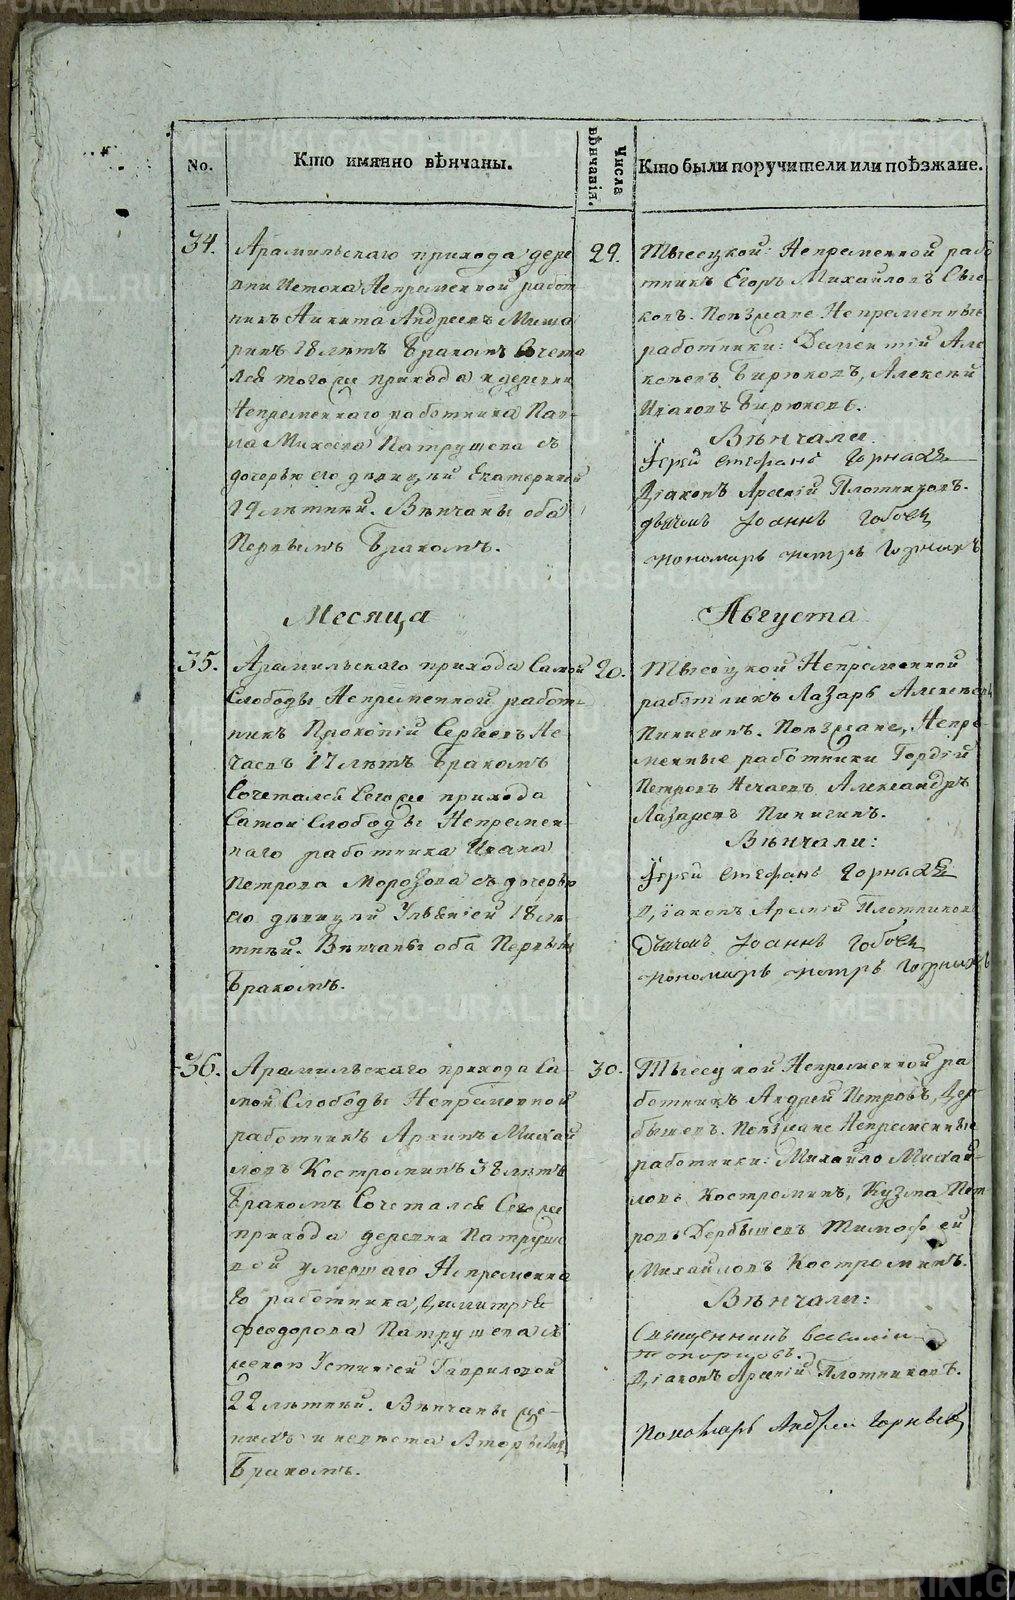 No.
Кто имянно вѣнчаны.
Числа
вѣнчанiя.
Кто были поручители или поѣзжане.
34.
Арамильскаго прихода дере
вни Истока Непременной работ
никъ Никита Андреевъ Миша
ринъ 18 лѣтъ бракомъ сочета
лся того же прихода и деревни
Непременнаго работника Пав-
ла Михеева Патрушева съ
дочерью его дѣвицей Екатериной
19 лѣтней. Вѣнчаны оба
Первымъ бракомъ.
29.
Тысецкой: Непременной рабо
тникъ Егоръ Михайловъ
Поѣзжане Непременные
работники: Дементiй Але
ксеевъ Бирюковъ, Алексѣй
Исаковъ Бирюковъ.
Вѣнчали
Iерей Стефанъ Горныхъ
Дiаконъ Арсенiй Плотниковъ.
дьячокъ Iоаннъ
пономарь Петръ Горныхъ
Месяца
Августа
35.
Арамильскаго прихода Самой
Слободы Непременной работ-
никъ Прокопiй Сергѣевъ Не
чаевъ 17 лѣтъ бракомъ
Сочетался Сего же прихода
Самои Слободы Непремен-
наго работника Ивана
Петрова Морозова съ дочерью
его дѣвицей Ульянiей 18 лѣ-
тней. Вѣнчаны оба Первымъ
бракомъ.
20.
Тысецкой Непременной
работникъ Лазарь Алексѣевъ
Пинигинъ. Поѣзжане, Непре-
менные работники Гордiй
Петровъ Нечаевъ Александръ
Лазаревъ Пинигинъ.
Вѣнчали:
Iерей Стефанъ Горныхъ
Дiаконъ Арсенiй Плотниковъ
Дьячокъ Iоаннъ
пономарь Петръ Горныхъ
36.
Арамильскаго прихода Са
мой Слободы Непременной
работникъ Архипъ Михай
ловъ Костроминъ 38 лѣтъ
бракомъ Сочетался Сего же
прихода деревни Патруше
вой умершаго Непременна
го работника, Димитрiя
Феодорова Патрушева съ
женою Устинiей Гавриловой
22 лѣтней. Вѣнчаны же-
нихъ и невѣста Вторымъ
бракомъ.
30.
Тысецкой Непременной ра
ботникъ Андрей Петровъ, Дер-
бышевъ. Поѣзжане Непременные
работники: Михайло Михай-
ловъ Костроминъ, Кузма Пет
ровъ Дербышевъ Тимофей
Михайловъ Костроминъ.
Вѣнчали:
Священникъ Василiй
Топорковъ.
Дiаконъ Арсенiй Плотниковъ.
Пономарь Андрей Горныхъ